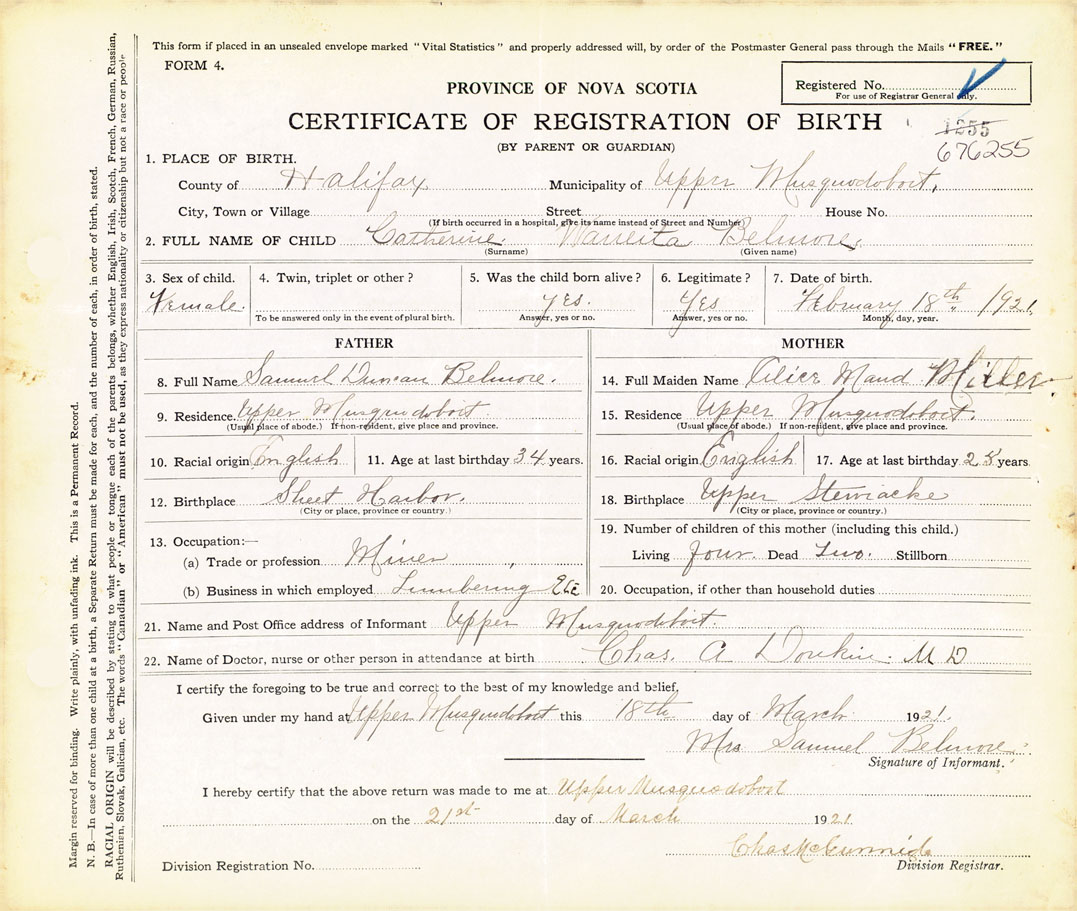 This form if placed in an unsealed envelope marked "Vital Statistics" and properly addressed will, by order of the Postmaster General pass through the Mails "FREE."
FORM 4.
Registered No.
For use of Registrar General only.
PROVINCE OF NOVA SCOTIA
CERTIFICATE OF REGISTRATION OF BIRTH
1255
(BY PARENT OR GUARDIAN)
676255
1. PLACE OF BIRTH.
County of Halifax Municipality of Upper Musquodoboit.
City, Town or Village Street House No.
(If birth occurred in a hospital, give its name instead of Street and Number)
2. FULL NAME OF CHILD Catherine Belmore.
(Surname) (Given name)
3. Sex of child. 4. Twin, triplet or other? 5. Was the child born alive? 6. Legitimate? 7. Date of birth.
Female. Yes. Yes February 18th 1921.
To be answered only in the event of plural birth. Answer, yes or no. Answer, yes or no. Month, day, year.
FATHER MOTHER
8. Full Name Samuel Duncan Belmore. 14. Full Maiden Name Alice Maud Miller
9. Residence. Upper Musquodoboit. 15. Residence Upper Musquodoboit.
(Usual place of abode.) If non-resident, give place and province. (Usual place of abode.) If non-resident, give place and province.
10. Racial origin English 11. Age at last birthday 34 years. 16. Racial origin English 17. Age at last birthday years.
12. Birthplace Sheet Harbor. 18. Birthplace Upper Stewiacke
(City or place, province or country.) (City or place, province or country.)
19. Number of children of this mother (including this child.)
13. Occupation:—
Living four. Dead Two. Stillborn
(a) Trade or profession Miner
(b) Business in which employed Lumbering Etc 20. Occupation, if other than household duties
21. Name and Post Office address of Informant Upper Musquodoboit.
22. Name of Doctor, nurse or other person in attendance at birth Chas. A Donkin. M D
I certify the foregoing to be true and correct to the best of my knowledge and belief.
Given under my hand at Upper Musquodoboit this 18th day of March 1921.
Mrs Samuel Belmore.
Signature of Informant.
I hereby certify that the above return was made to me at Upper Musquodoboit
on the 21st day of March 1921
Division Registration No. Division Registrar.
Margin reserved for binding. Write plainly, with unfading ink. This is a Permanent Record.
N. B.—In case of more than one child at a birth, a Separate Return must be made for each, and the number of each, in order of birth, stated.
RACIAL ORIGIN will be described by stating to what people or tongue each of the parents belongs, whether English, Irish, Scotch, French, German, Russian,
Ruthenian, Slovak, Galician, etc. The words "Canadian" or "American" must not be used, as they express nationality or citizenship but not a race or people